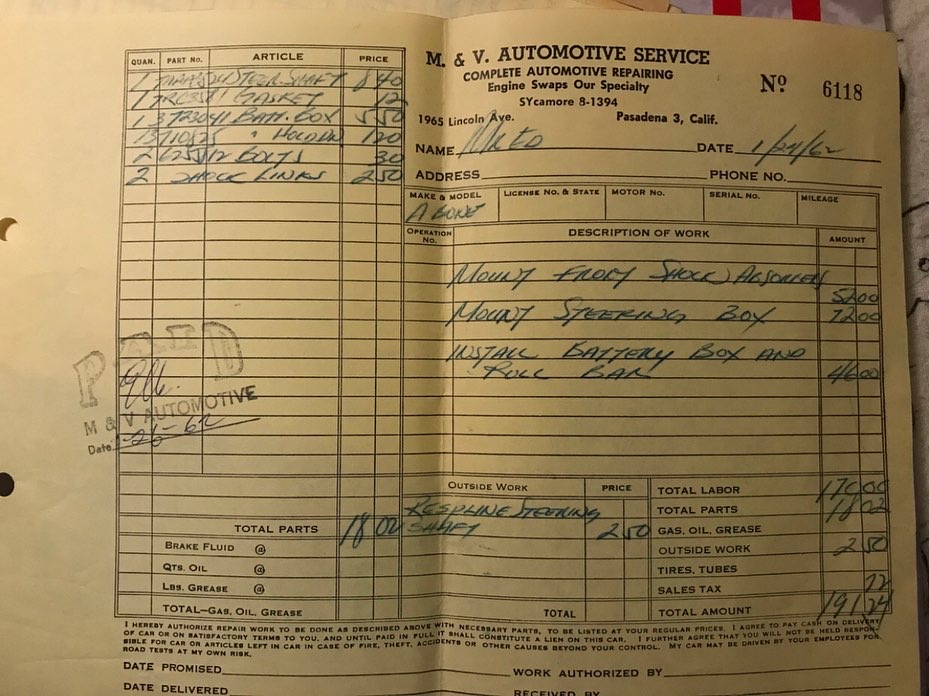 M. & V. AUTOMOTIVE SERVICE
COMPLETE AUTOMOTIVE REPAIRING
Engine Swaps Our Specialty
SYcamore 8-1394
1965 Lincoln Ave. Pasadena 3, Calif.
Nº 6118
NAME Mr Ed DATE 1/24/62
ADDRESS PHONE NO.
MAKE & MODEL LICENSE NO. & STATE MOTOR NO. SERIAL NO. MILEAGE
A BONE
QUAN. PART NO. ARTICLE PRICE
1 STEER SHAFT 8 40
1 GASKET 12
1 3723041 BATT. BOX 5 50
" HOLDDN 1 20
2 BOLTS 30
2 SHOCK LINKS 2 50
TOTAL PARTS 18 02
BRAKE FLUID @
QTS. OIL @
LBS. GREASE @
TOTAL—GAS, OIL, GREASE
PAID
M & V AUTOMOTIVE
Date 1-26-62
OPERATION NO. DESCRIPTION OF WORK AMOUNT
MOUNT FRONT SHOCK ABSORBERS
52 00
MOUNT STEERING BOX 72 00
INSTALL BATTERY BOX AND
ROLL BAR 46 00
OUTSIDE WORK PRICE
RESPLINE STEERING
SHAFT 2 50
TOTAL
TOTAL LABOR 170 00
TOTAL PARTS 18 02
GAS, OIL, GREASE
OUTSIDE WORK 2 50
TIRES, TUBES
SALES TAX 72
TOTAL AMOUNT 191 24
I HEREBY AUTHORIZE REPAIR WORK TO BE DONE AS DESCRIBED ABOVE WITH NECESSARY PARTS, TO BE LISTED AT YOUR REGULAR PRICES. I AGREE TO PAY CASH ON DELIVERY
OF CAR OR ON SATISFACTORY TERMS TO YOU, AND UNTIL PAID IN FULL IT SHALL CONSTITUTE A LIEN ON THIS CAR. I FURTHER AGREE THAT YOU WILL NOT BE HELD RESPON-
SIBLE FOR CAR OR ARTICLES LEFT IN CAR IN CASE OF FIRE, THEFT, ACCIDENTS OR OTHER CAUSES BEYOND YOUR CONTROL. MY CAR MAY BE DRIVEN BY YOUR EMPLOYEES FOR
ROAD TESTS AT MY OWN RISK.
DATE PROMISED WORK AUTHORIZED BY
DATE DELIVERED RECEIVED BY